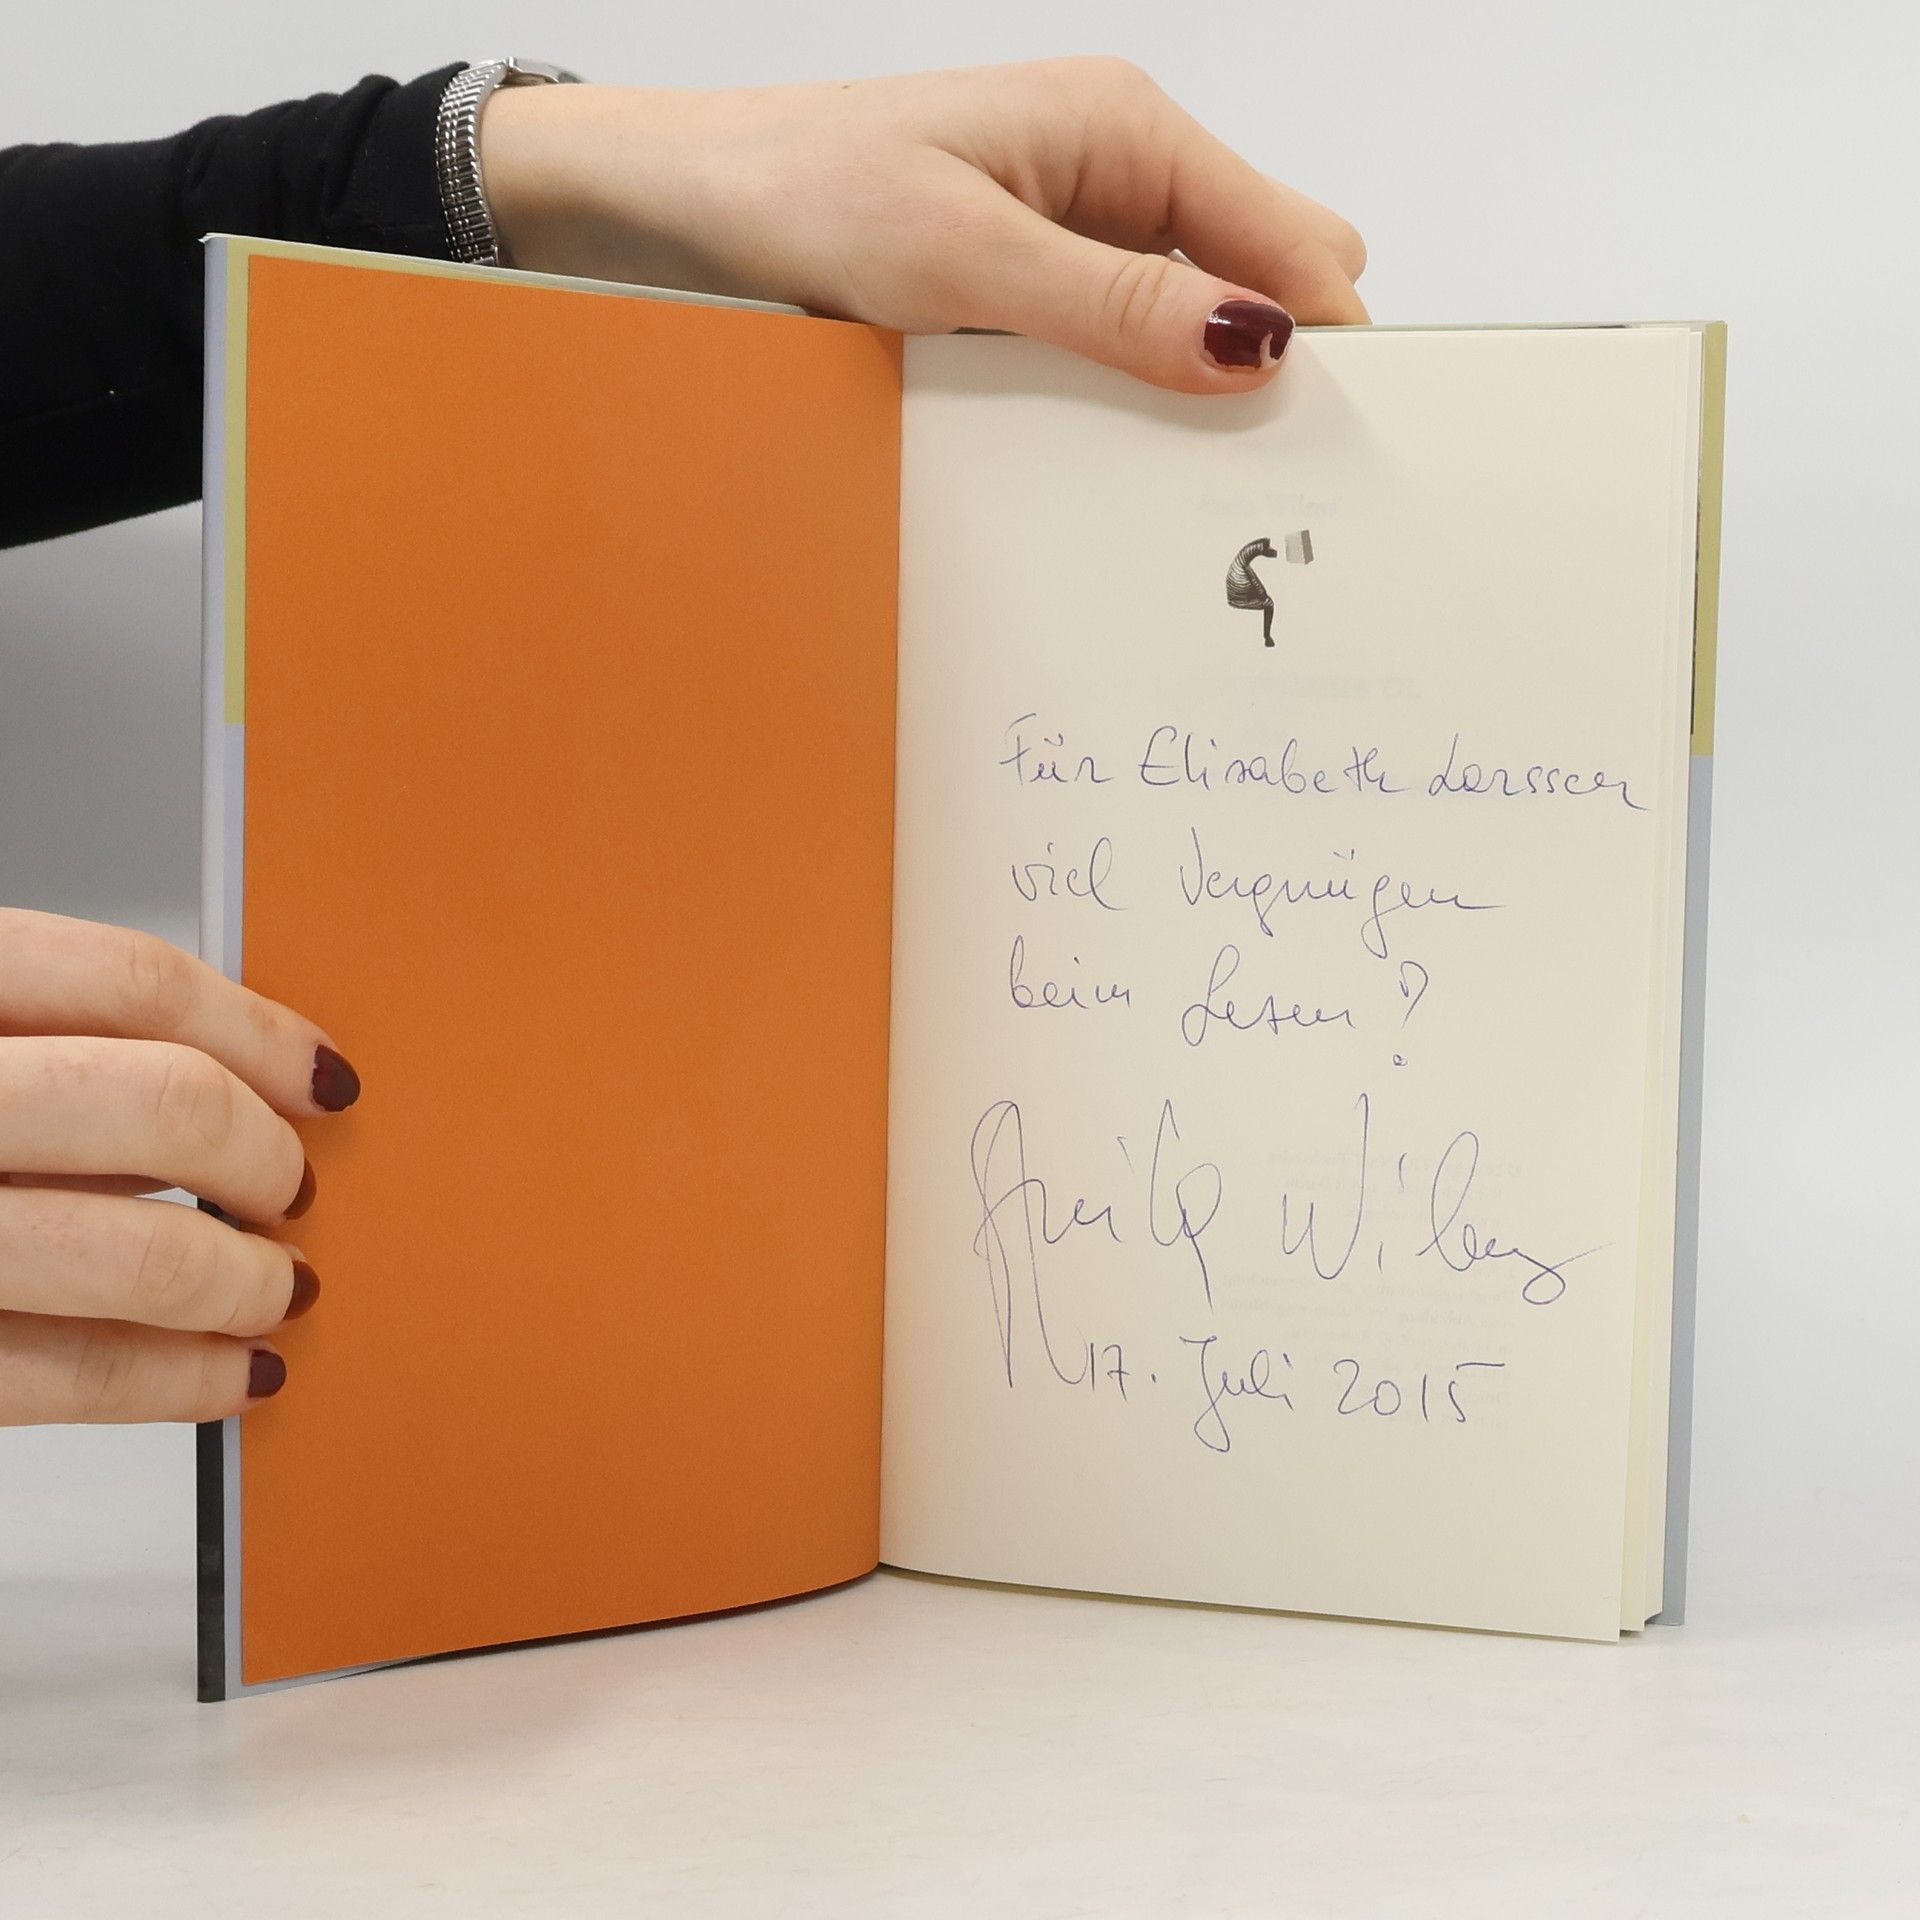 Für Elisabeth Larsson
viel Vergnügen
beim Lesen!
17. Juli 2015